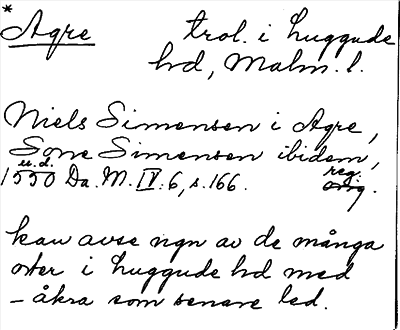 *
Agre trol. i Luggude
hd, Malm. l.
Niels Simensen i Agre,
Sone Simensen ibidem,
u.d. reg.
1550 Da. M. IV: 6, s. 166. orig.
kan avse ngn av de många
orter i Luggude hd med
– åkra som senare led.